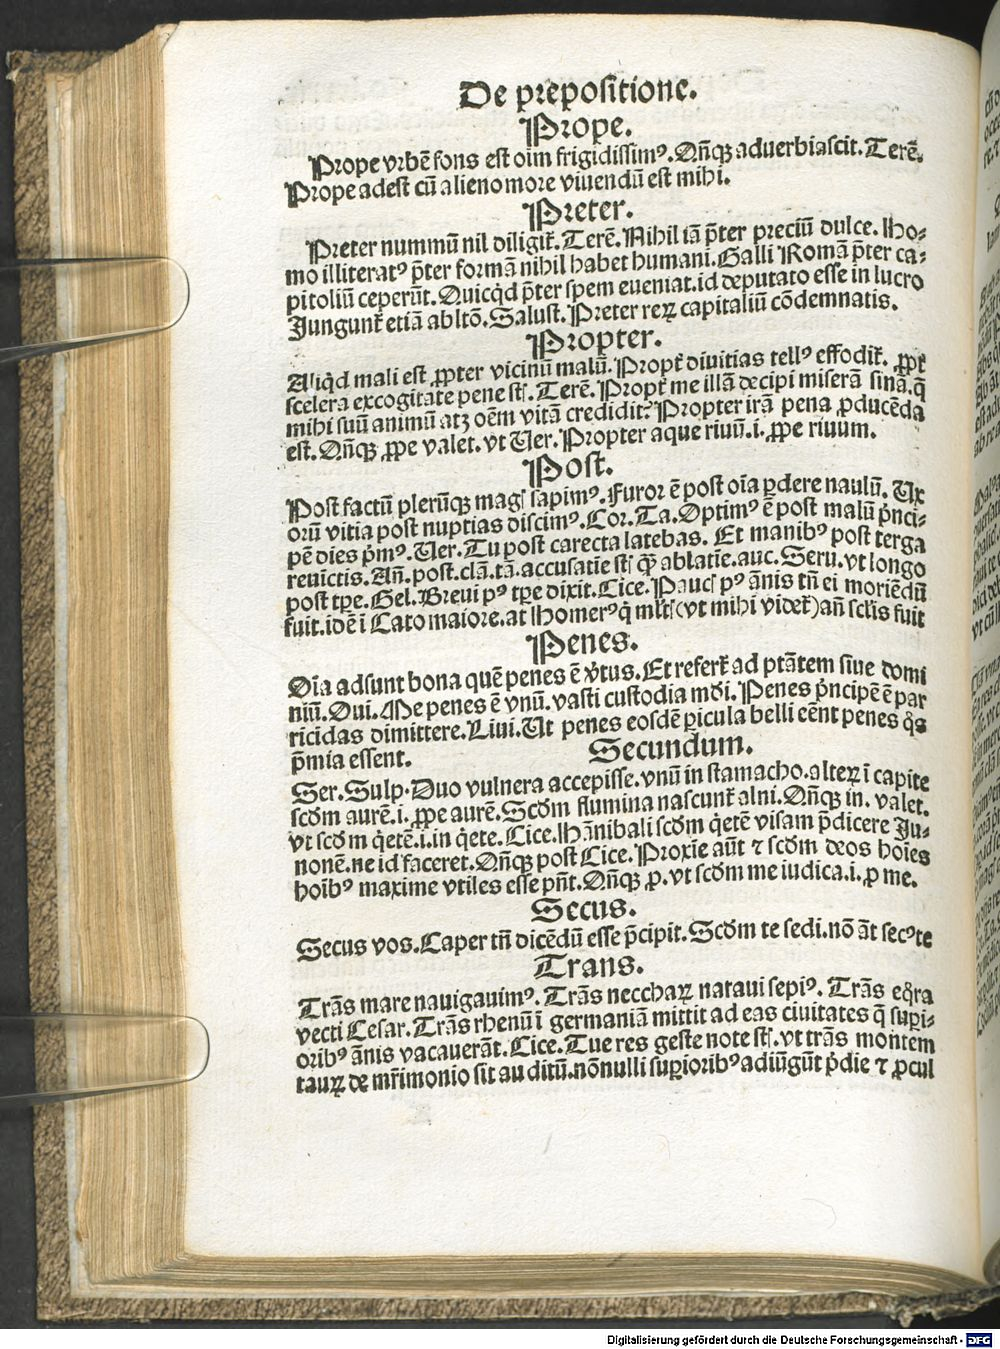 De prepositione.
Prope.
Prope vrbē fons est oīm frigidissimꝰ. Qn̄qꝫ aduerbiascit. Terē.
Prope adest cū alieno more viuendū est mihi.
Preter.
Preter nummū nil diligit̄. Terē. Nihil iā p̄ter preciū dulce. Ho-
mo illiteratꝰ p̄ter formā nihil habet humani. Galli Romā p̄ter ca-
pitoliū ceperūt. Quicq̇d p̄ter spem eueniat. id deputato esse in lucro
Jungunt̄ etiā abltō. Salust. Preter reꝝ capitaliū cōdemnatis.
Propter.
Aliq̇d mali est ꝓpter vicinū malū. Propt̄ diuitias tellꝰ effodit̄. ꝓpt̄
scelera excogitate pene st̄. Terē. Propt̄ me illā decipi miserā sinā. q̄
mihi suū animū atꝫ oēm vitā credidit? Propter irā pena ꝓducēda
est. Qn̄qꝫ ꝓpe valet. vt Uer. Propter aque riuū. i. ꝓpe riuum.
Post.
Post factū plerūqꝫ sapimꝰ. Furor ē post oīa ꝑdere naulū. Ux
orū vitia post nuptias discimꝰ. Cor. Ta. Optimꝰ ē post malū p̍nci-
pē dies p̍mꝰ. Uer. Tu post carecta latebas. Et manibꝰ post terga
reuictis. Añ. post. clā. tā. accusatie ablatīe. auc. Seru. vt longo
post tꝑe. Gel. Breui pꝰ tꝑe dixit. Cice. pꝰ ānis tn̄ ei moriēdū
fuit. idē ī Cato maiore. at Homerꝰ q̍ (vt mihi videt̄) an̄ fuit
Penes.
Oīa adsunt bona quē penes ē v̍tus. Et refert̄ ad ptātem siue domi
niū. Oui. Me penes ē vnū. vasti custodia mūdi. Penes p̍ncipē ē par
ricidas dimittere. Liui. Ut penes eosdē ꝑicula belli eēnt penes q̍s
p̄mia essent.
Secundum.
Ser. Sulp. Duo vulnera accepisse. vnū in stamacho. alteꝝ ī capite
scd̄m aurē. i. ꝓpe aurē. Scd̄m flumina nascunt̄ alni. Qn̄qꝫ in. valet.
vt scd̄m q̍etē. i. in q̍ete. Cice. Hānibali scd̄m q̍etē visam p̄dicere Ju-
nonē. ne id faceret. Qn̄qꝫ post Cice. Proxie aūt ⁊ scd̄m deos hoīes
hoībꝰ maxime vtiles esse pn̄t. Qn̄qꝫ ꝓ. vt scd̄m me iudica. i. ꝓ me.
Secus.
Secus vos. Caper tn̄ dicēdū esse p̄cipit. Scd̄m te sedi. nō āt secꝰ te
Trans.
Trās mare nauigauimꝰ. Trās necchaꝝ nataui sepiꝰ. Trās eq̍ra
vecti Cesar. Trās rhenū ī germaniā mittit ad eas ciuitates q̄ suꝑi-
oribꝰ ānis vacauerāt. Cice. Tue res geste note st̄. vt trās montem
tauꝝ de mr̄imonio sit auditū. nōnulli suꝑioribꝰ adiūgūt p̍die ⁊ ꝓcul
Digitalisierung gefördert durch die Deutsche Forschungsgemeinschaft - DFG